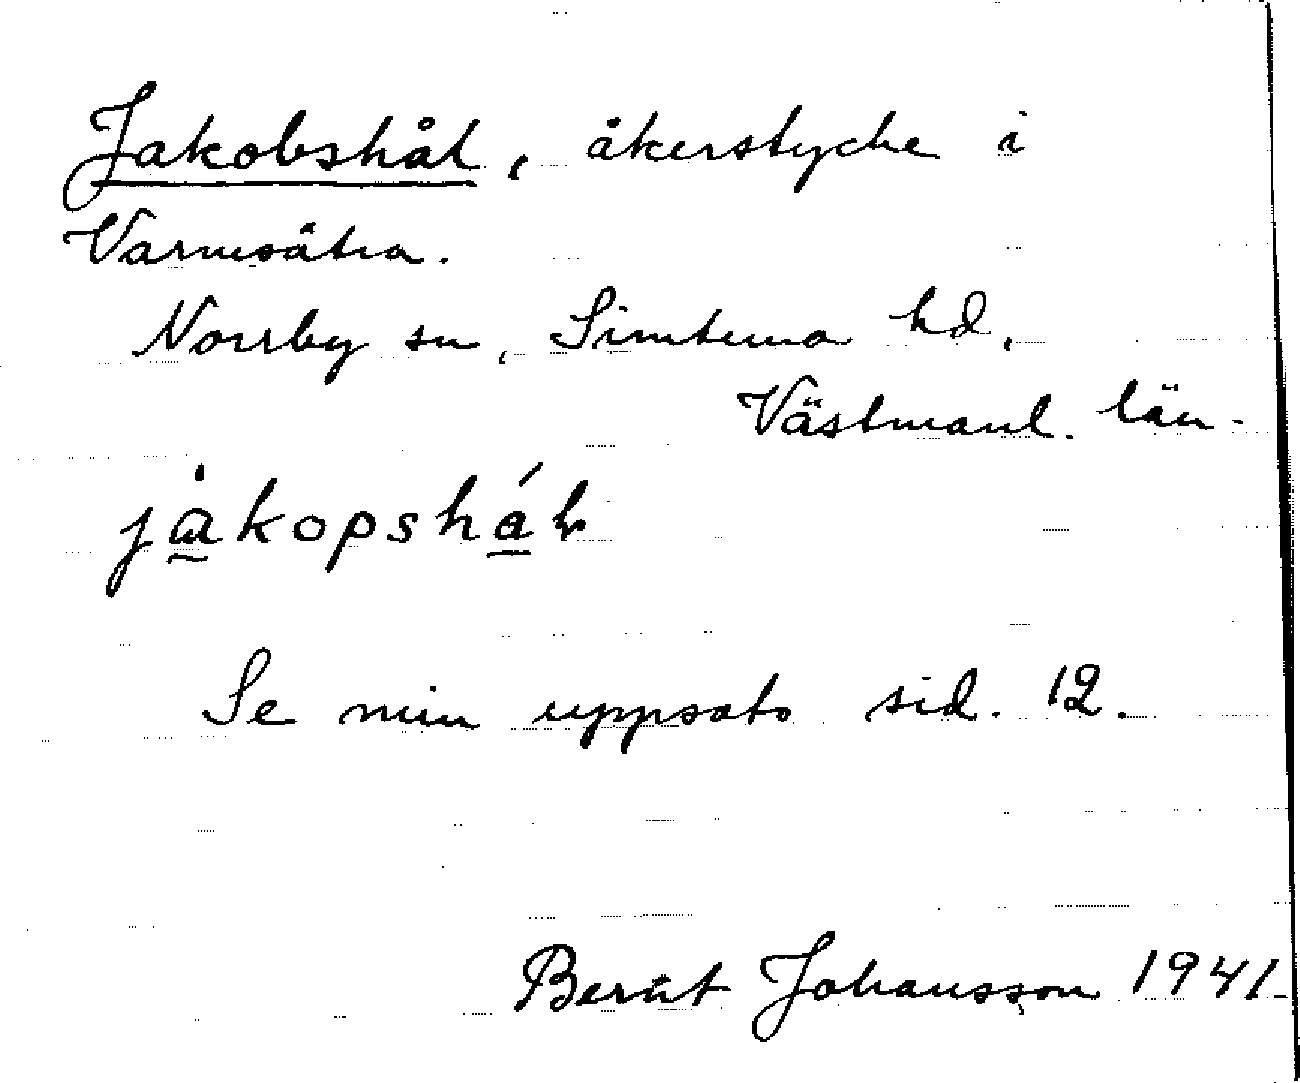 Jakobshål, åkerstycke i
Varmsätra.
Norrby sn, Simtuna hd,
Västmanl. län.
jakopshál
Se min uppsats sid. 12.
Bernt Johansson 1941.